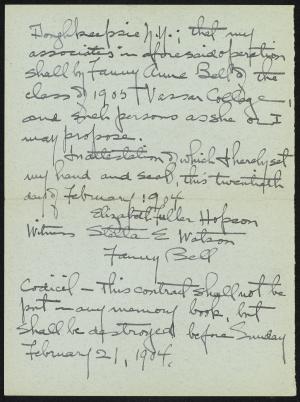 Poughkeepsie N.Y.; that my
associates in aforesaid operation
shall by Fanny Anne Bell of the
class of 1905 Vassar College,
and such persons as she or I
may propose.
In attestation of which I hereby set
my hand and seal, this twentieth
day of February 1904
Elizabeth Fuller Hopson
Witness Stella E Watson
Fanny Bell
Codicil – This contract shall not be
put in any memory book, but
shall be destroyed before Sunday
February 21, 1904.